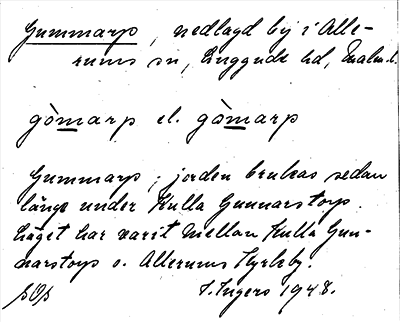 Gummarp, nedlagd by i Alle-
rums sn, Luggude hd, Malm. l.
gòmarp el. gòmarp
Gummarp; jorden brukas sedan
länge under Kulla Gunnarstorp.
Läget har varit mellan Kulla Gun-
narstorp o. Allerums Kyrkby.
I. Ingers 1948.